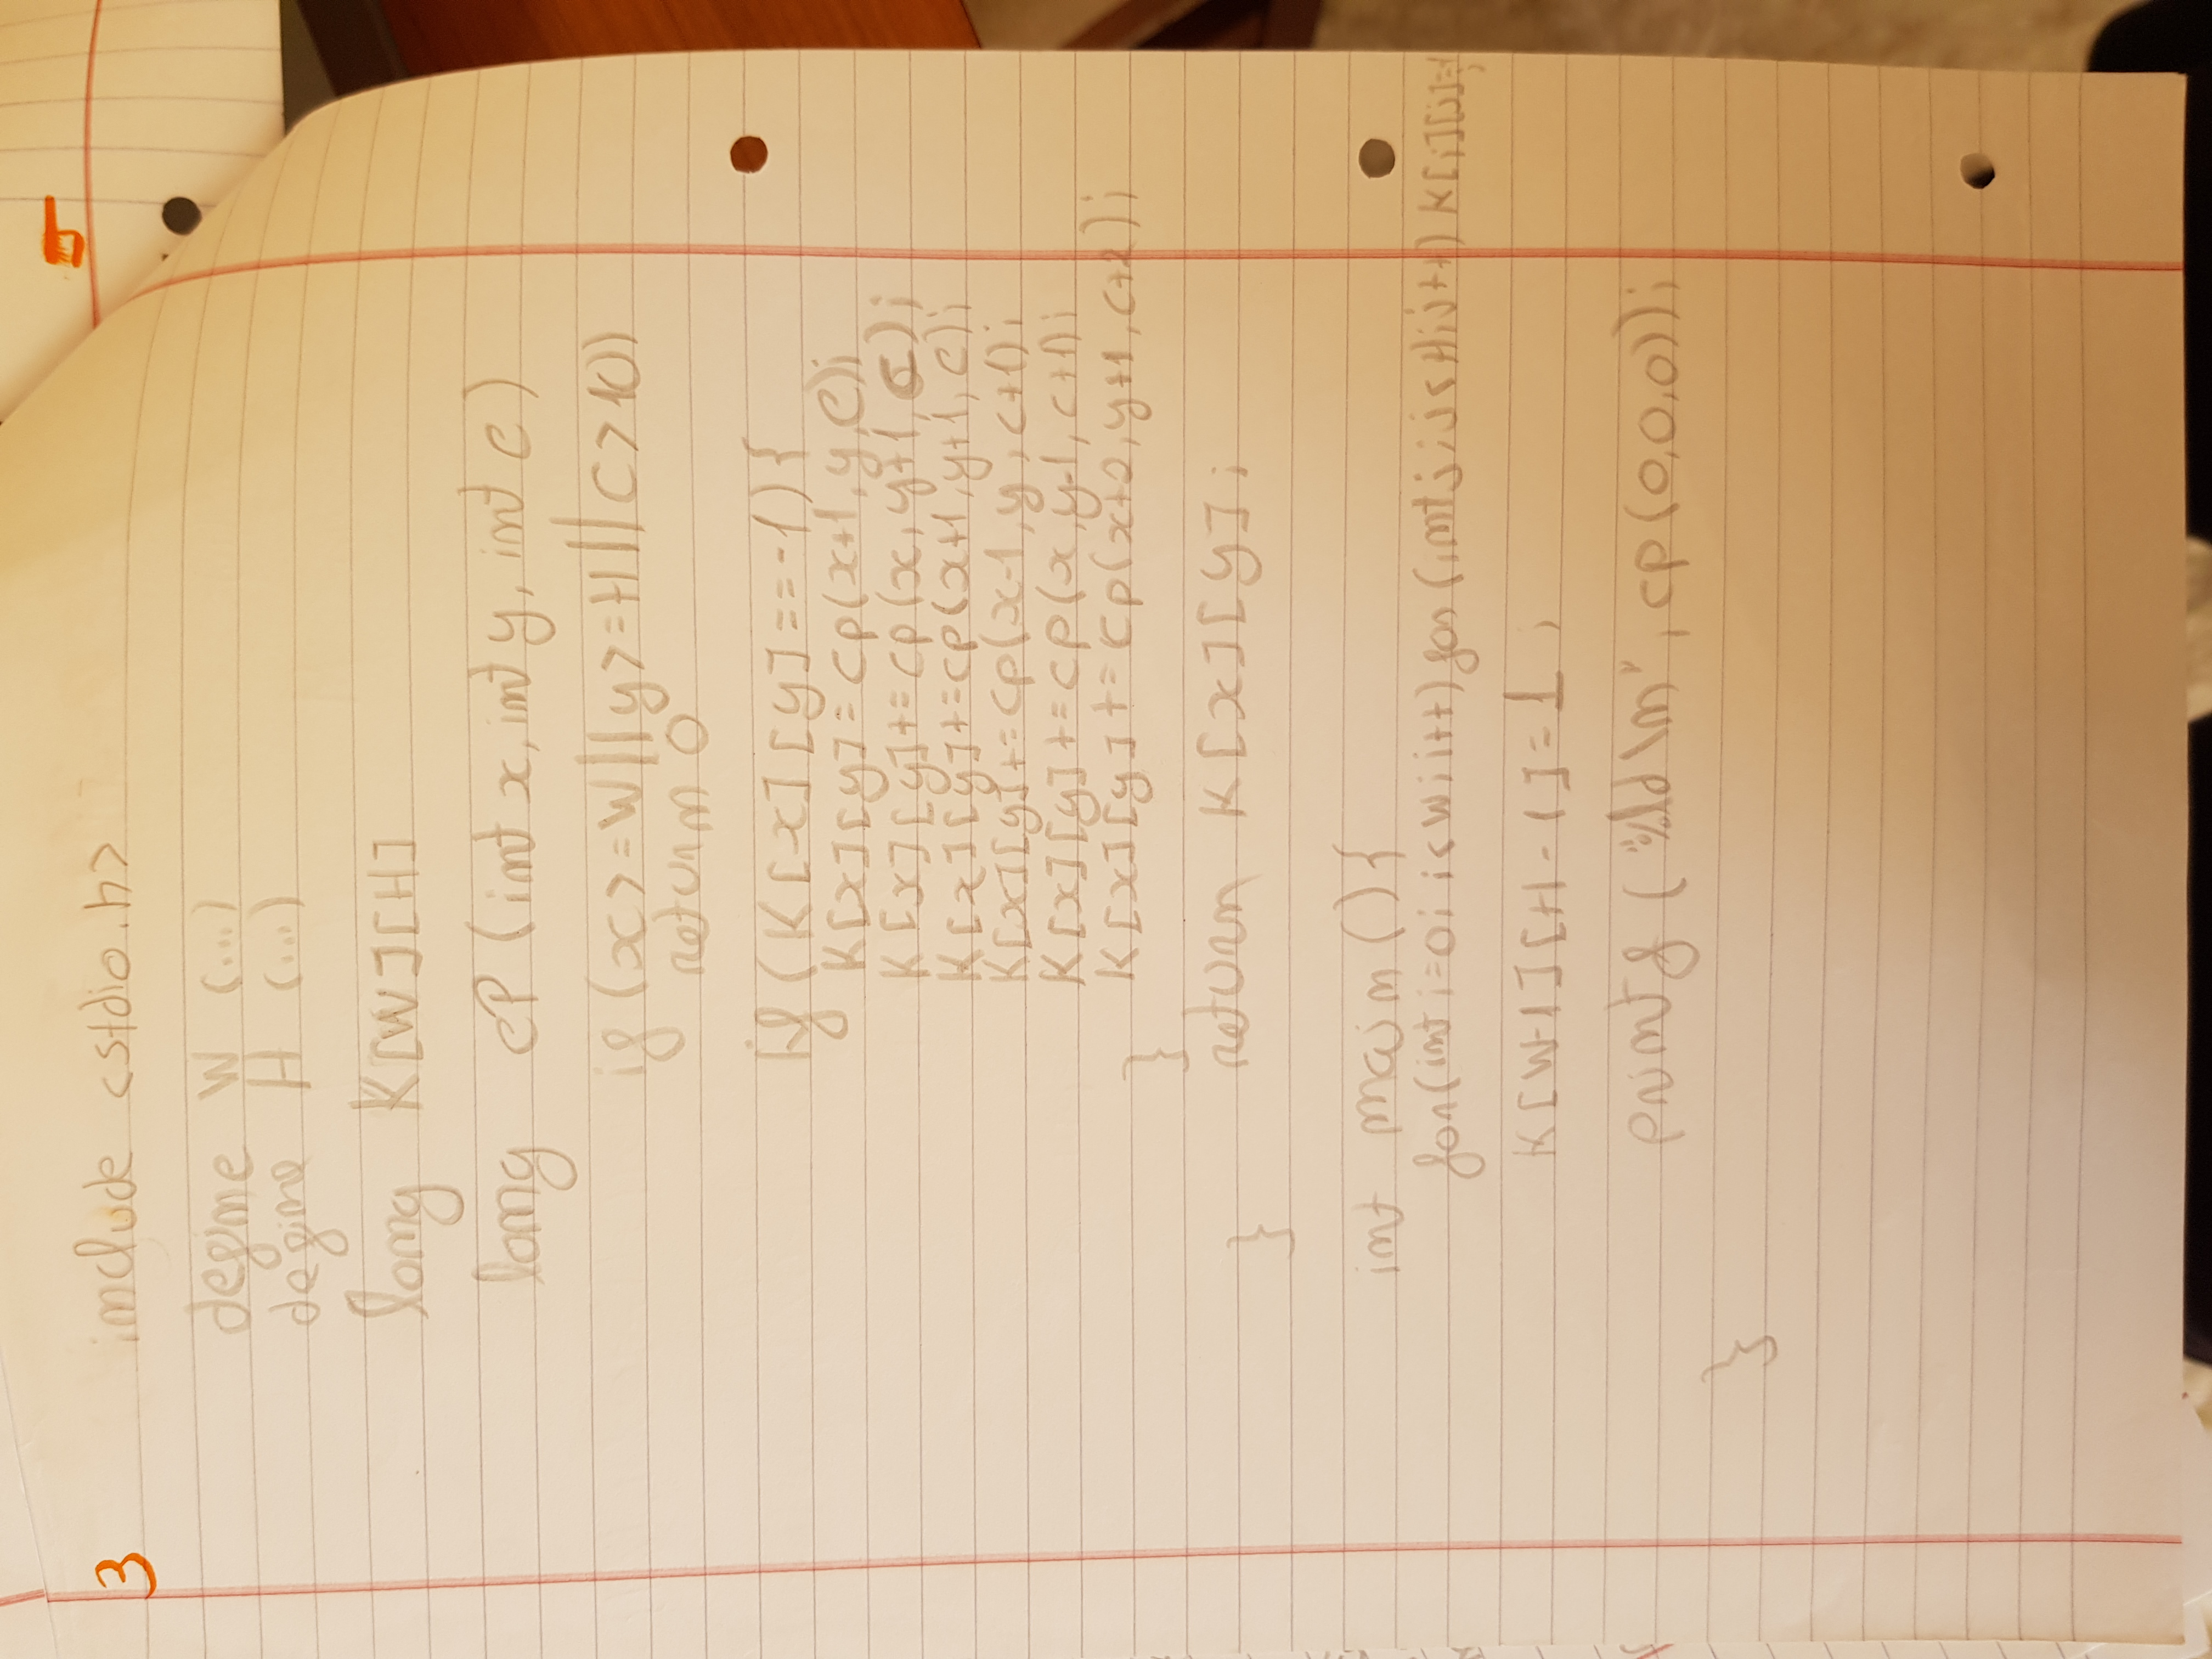 3
include <stdio.h>
define W (...)
define H (...)
long K[W][H]
long cP (int x, int y, int c)
if (x>=W||y>=H||C>10)
return 0
if (K[x][y]==-1){
K[x][y]=cp(x+1,y,C);
K[x][y]+=cp(x,y+1,c);
K[x][y]+=cp(x+1,y+1,c);
K[x][y]+=cp(x-1,y,c+1);
K[x][y]+=cp(x,y-1,c+1);
K[x][y]+=cp(x+2,y+1,c+2);
}
return K[x][y];
}
int main(){
for(int i=0; i<W; i++) for (int j; j<H; j++) K[i][j]=-1;
K[W-1][H-1]=1;
printf ("%ld\n", cp(0,0,0));
}